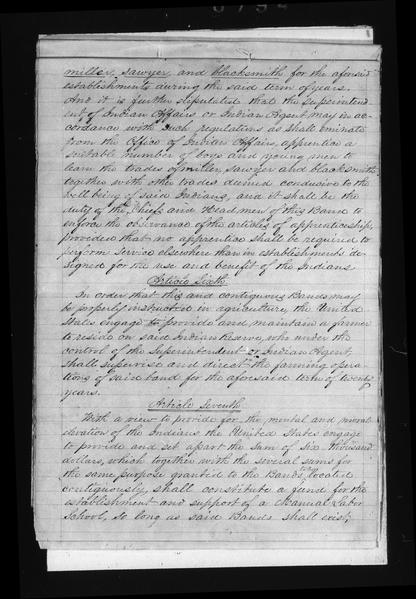 miller, sawyer, and blacksmith for the aforesaid
establishments during the said term of years.
And it is further stipulated that the Superintend
ent of Indian Affairs, or Indian Agent may in ac-
cordance with such regulations as shall eminate
from the Office of Indian Affairs, apprentice a
suitable number of boys and young men to
learn the trades of miller, sawyer and blacksmith,
together with other trades deemed conducive to the
well being of said Indians, and it shall be the
duty of the Chiefs and Head men of this Band to
enforce the observance of the articles of apprenticeship,
provided that no apprentice shall be required to
perform service elsewhere than in establishments de-
signed for the use and benefit of the Indians
Article Sixth
In order that this and contiguous Bands may
be properly instructed in agriculture, the United
States engage to provide and maintain a farmer
to reside on said Indian Reserve, who under the
control of the Superintendent or Indian Agent
shall supervise and direct the farming opera
tions of said band for the aforesaid term of twenty
years.
Article Seventh
With a view to provide for the mental and moral
elevation of the Indians the United States engage
to provide and set apart the sum of Six thousand
dollars, which together with the several sums for
the same purpose granted to the Bands located
contiguously, shall constitute a fund for the
establishment and support of a Manual Labor
School, so long as said Bands shall exist,